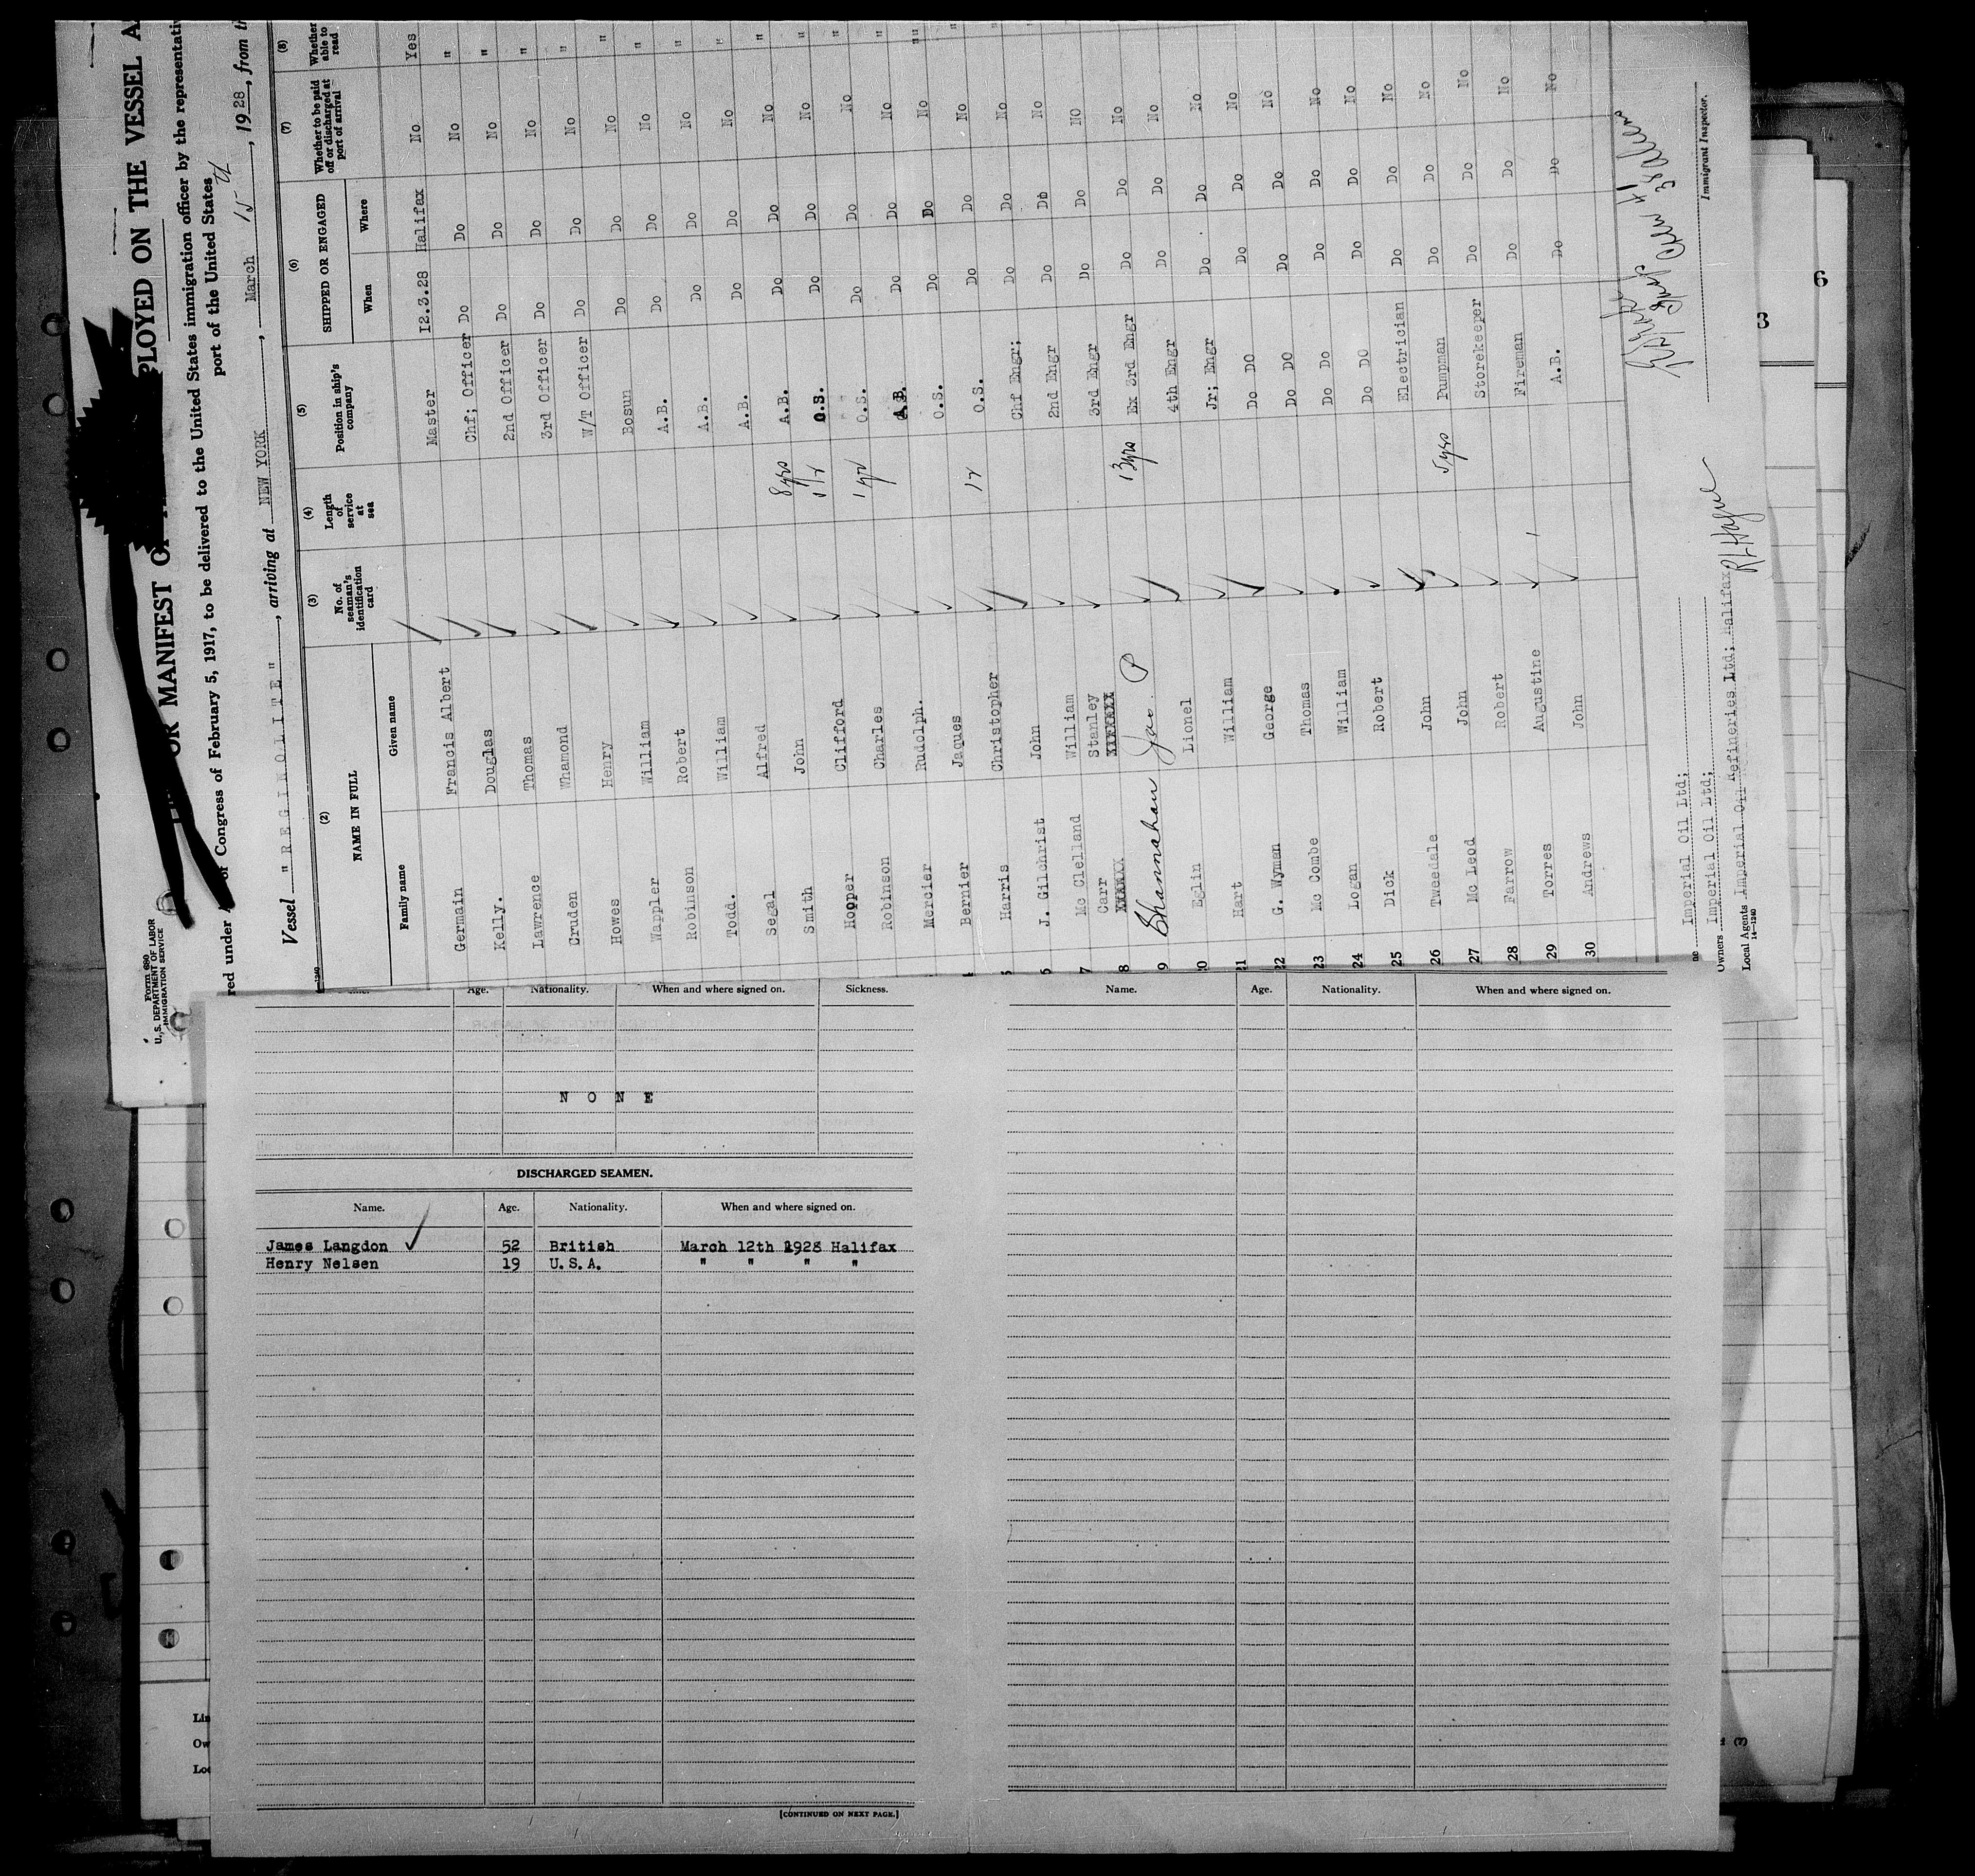 Form 680
U.S. DEPARTMENT OF LABOR
IMMIGRATION SERVICE
OR MANIFEST OF PLOYED ON THE VESSEL A
red under of Congress of February 5, 1917, to be delivered to the United States immigration officer by the representati
port of the United States
Vessel "REGINOLITE", arriving at NEW YORK, March 15th, 1928, from th
(2) (3) (4) (5) (6) (7) (8)
NAME IN FULL No. of seaman's identification card Length of service at sea Position in ship's company SHIPPED OR ENGAGED Whether to be paid off or discharged at port of arrival Whether able to read
Family name Given name When Where
Germain Francis Albert Master 12.3.28 Halifax No Yes
Kelly. Douglas Chf; Officer Do Do No "
Lawrence Thomas 2nd Officer Do Do No "
Cruden Whamond 3rd Officer Do Do No "
Howes Henry W/T Officer Do Do No "
Wappler William Bosun Do Do No "
Robinson Robert A.B. Do Do No "
Todd. William A.B. Do Do No "
Segal Alfred A.B. Do Do No "
Smith John 8 yrs A.B. Do Do No "
Hopper Clifford O.S. Do Do No "
Robinson Charles 1 yr O.S. Do Do No "
Mercier Rudolph. A.B. Do Do No "
Bernier Jaques O.S. Do Do No "
5 Harris Christopher O.S. Do Do No "
6 J. Gilchrist John Chf Engr; Do Do No "
7 Mc Clelland William 2nd Engr Do Do No
8 Carr Stanley 3rd Engr Do Do No
9 Shannahan Jas. P 13yrs Ex 3rd Engr Do Do No
20 Eglin Lionel 4th Engr Do Do No
21 Hart William Jr; Engr Do Do No
22 G. Wyman George Do DO Do Do No
23 Mc Combe Thomas Do DO Do Do No
24 Logan William Do Do Do Do No
25 Dick Robert Do DO Do Do No
26 Tweedale John Electrician Do Do No
27 Mc Leod John 5yrs Pumpman Do Do No
28 Farrow Robert Storekeeper Do Do No
29 Torres Augustine Fireman Do Do No
30 Andrews John A.B. Do Do No
Imperial Oil Ltd;
Owners Imperial Oil Ltd;
Local Agents Imperial Oil Refineries Ltd; Halifax
14—1240
Immigrant Inspector.
Age. Nationality. When and where signed on. Sickness.
NONE
DISCHARGED SEAMEN.
Name. Age. Nationality. When and where signed on.
James Langdon 52 British March 12th 1928 Halifax
Henry Nelsen 19 U.S.A. " " " "
[CONTINUED ON NEXT PAGE.]
Name. Age. Nationality. When and where signed on.
Lin
Ow
Loc
6
3